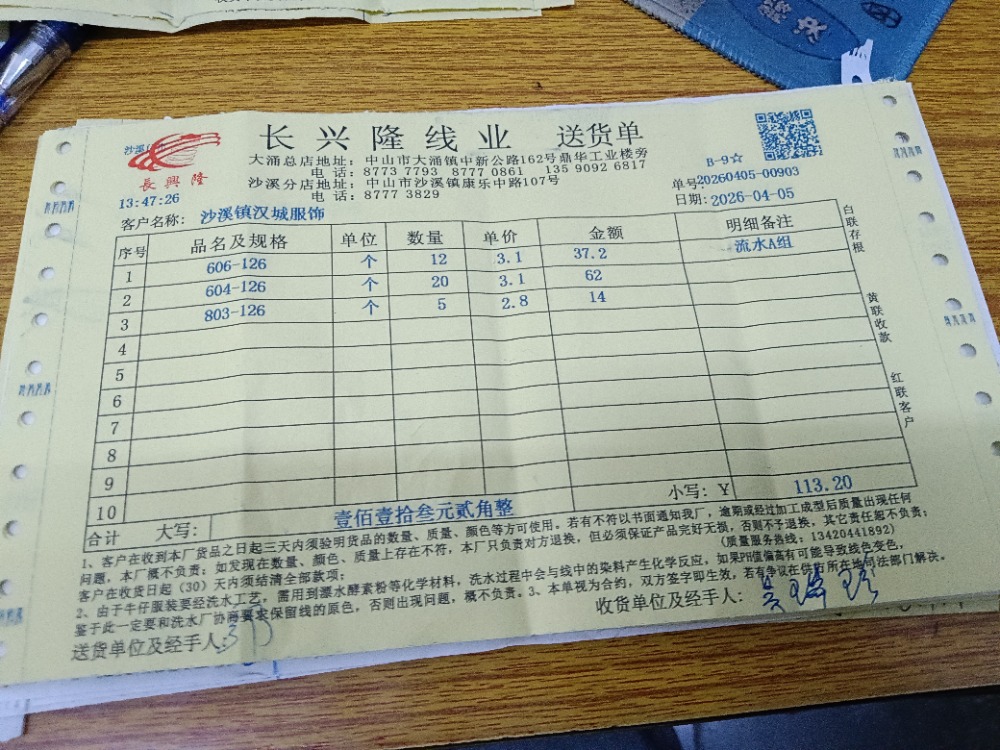 长兴隆线业 送货单
長興隆
大涌总店地址：中山市大涌镇中新公路162号鼎华工业楼旁
电话：8773 7793 8777 0861 135 9092 6817
沙溪分店地址：中山市沙溪镇康乐中路107号
电话：8777 3829
B-9☆
单号20260405-00903
13:47:26
日期：2026-04-05
客户名称：沙溪镇汉城服饰
序号 品名及规格 单位 数量 单价 金额 明细备注
1 606-126 个 12 3.1 37.2 流水A组
2 604-126 个 20 3.1 62
3 803-126 个 5 2.8 14
4
5
6
7
8
9
10
小写：￥ 113.20
合计 大写：壹佰壹拾叁元贰角整
白联存根
黄联收款
红联客户
1、客户在收到本厂货品之日起三天内须验明货品的数量、质量、颜色等方可使用。若有不符以书面通知我厂，逾期或经过加工成型后质量出现任何
问题，本厂概不负责；如发现在数量、颜色、质量上存在不符，本厂只负责对方退换，但必须保证产品完好无损，否则不予退换，其它责任恕不负责；
客户在收货日起（30）天内须结清全部款项； (质量服务热线：13420441892)
2、由于牛仔服装要经洗水工艺，需用到漂水酵素粉等化学材料，洗水过程中会与线中的染料产生化学反应，如果PH值偏高有可能导致线色变色，
鉴于此一定要和洗水厂协商要求保留线的原色，否则出现问题，概不负责。3、本单视为合约，双方签字即生效，若有争议在供方所在地司法部门解决。
送货单位及经手人：
收货单位及经手人：